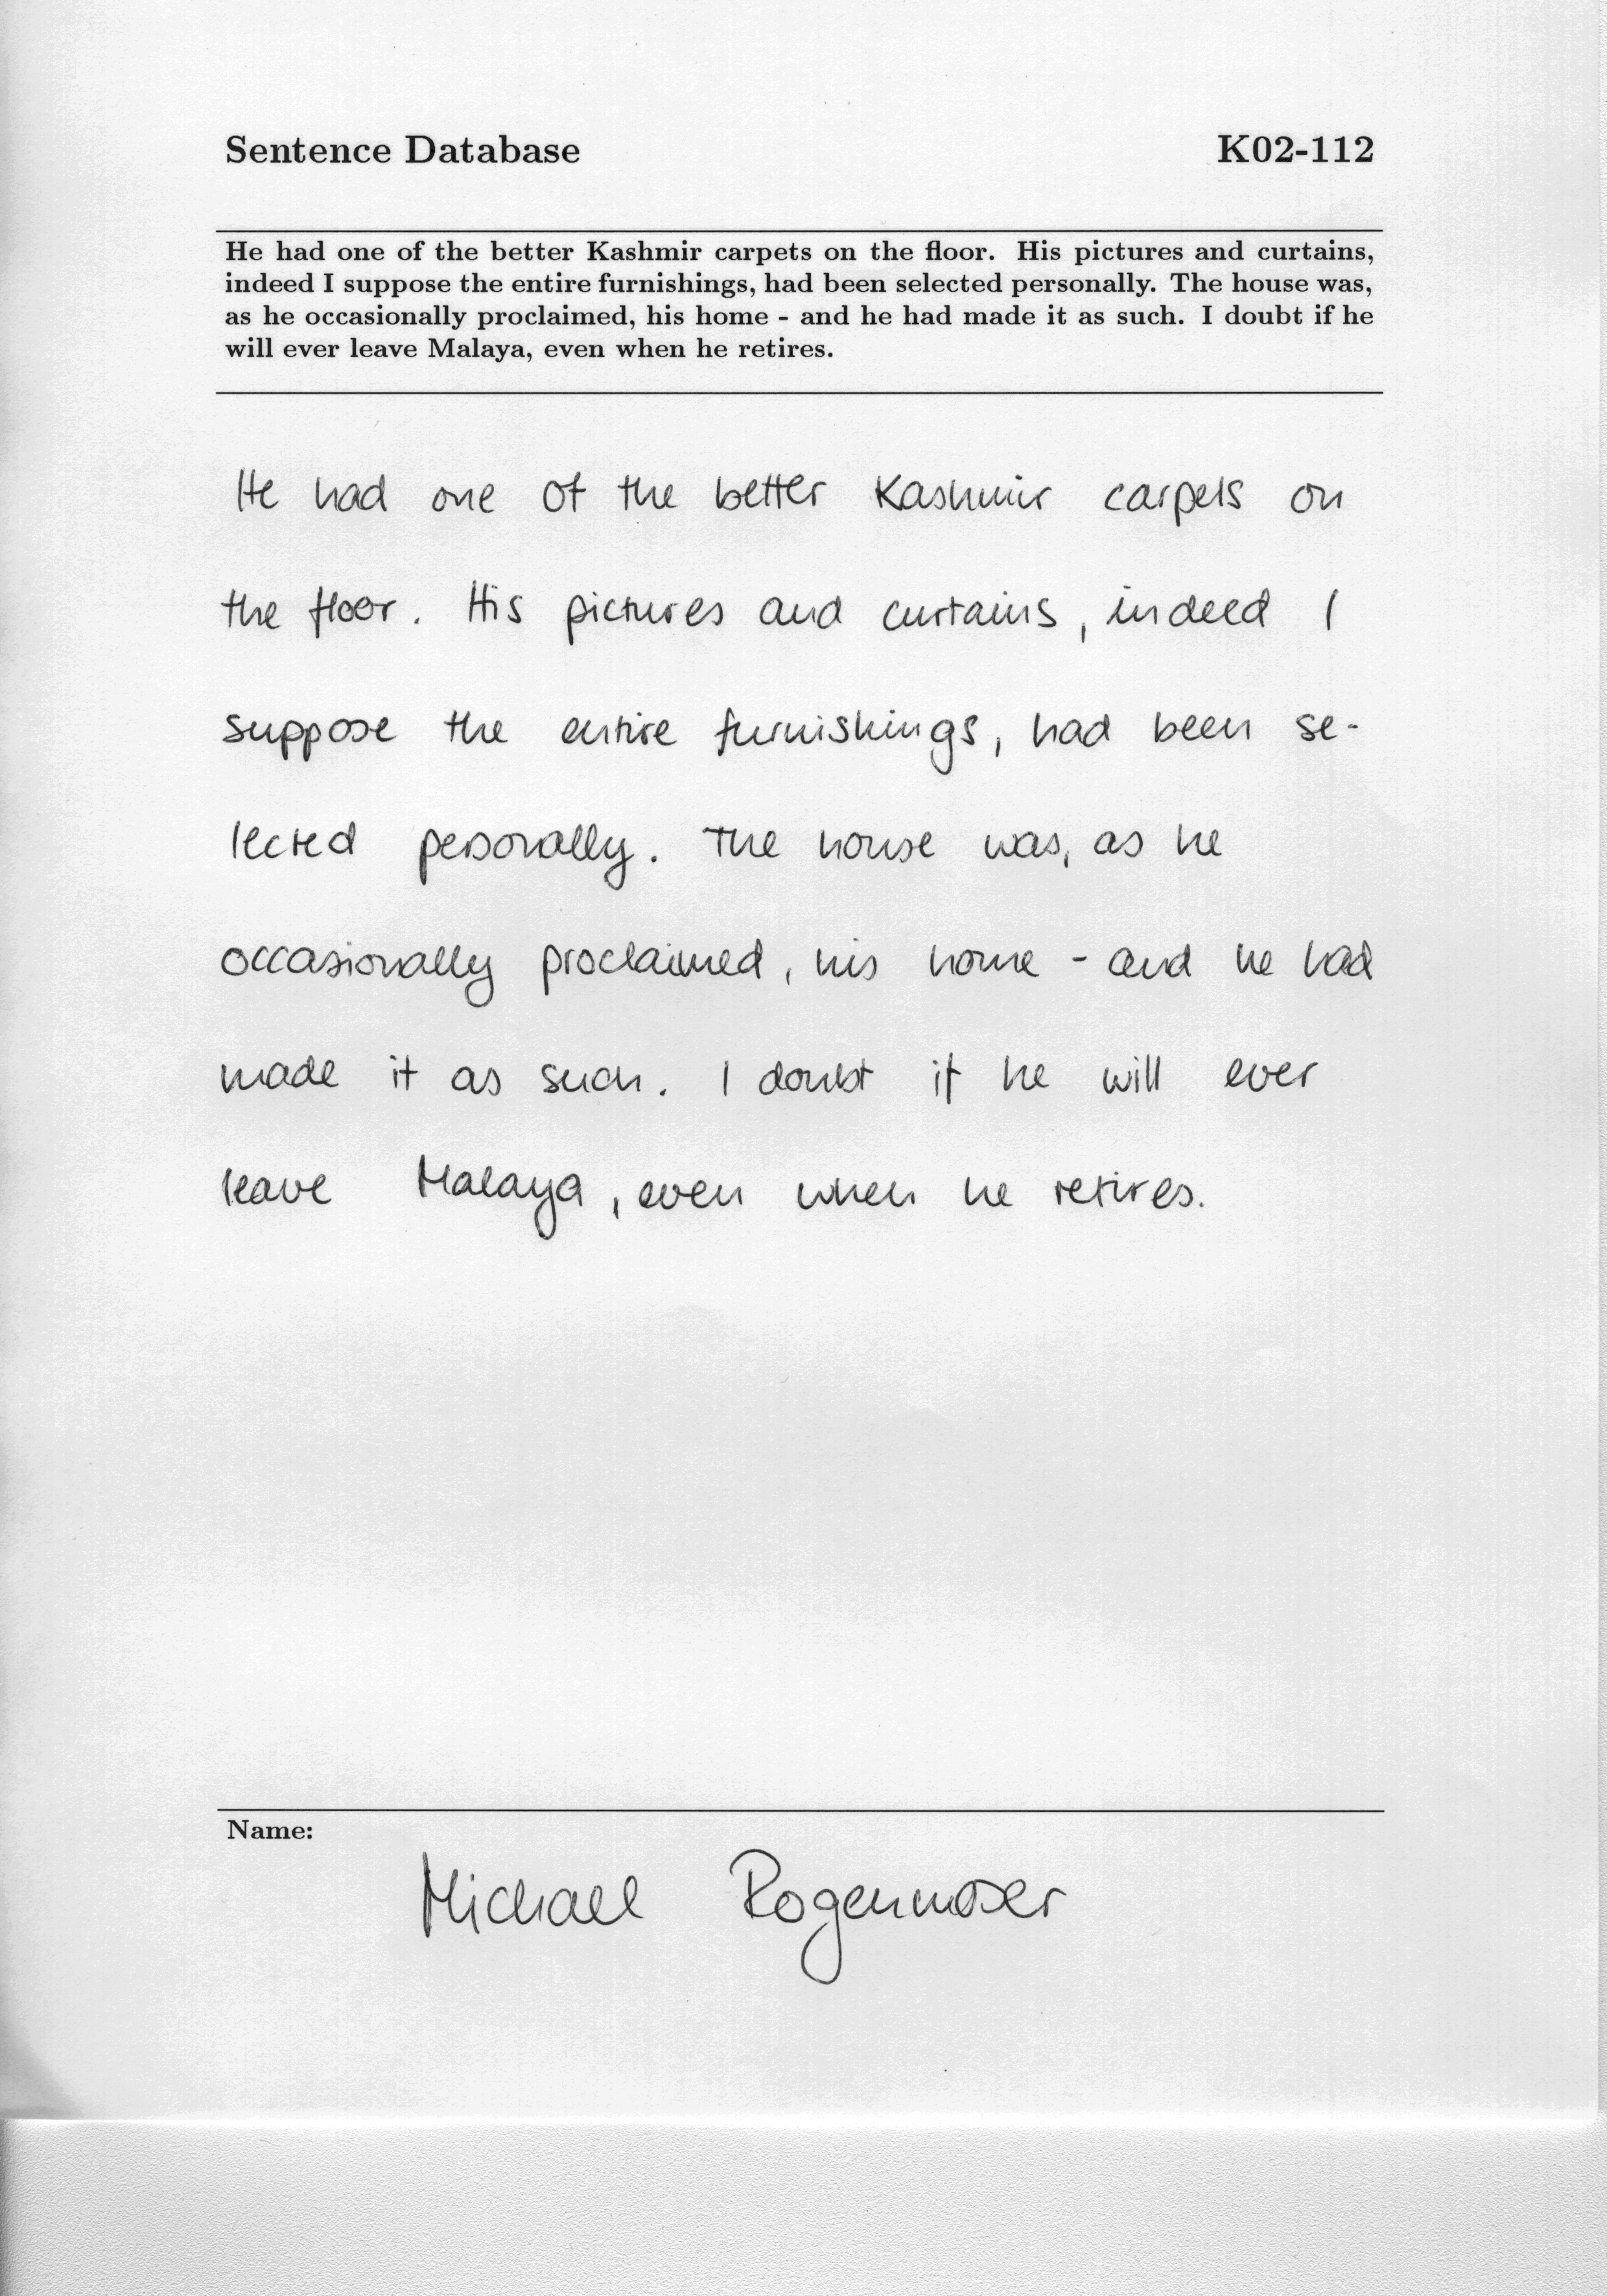 Sentence Database K02-112
He had one of the better Kashmir carpets on the floor. His pictures and curtains,
indeed I suppose the entire furnishings, had been selected personally. The house was,
as he occasionally proclaimed, his home - and he had made it as such. I doubt if he
will ever leave Malaya, even when he retires.
He had one of the better Kashmir carpets on
the floor. His pictures and curtains, indeed I
suppose the entire furnishings, had been se-
lected personally. The house was, as he
occasionally proclaimed, his home - and he had
made it as such. I doubt if he will ever
leave Malaya, even when he retires.
Name:
Michael Rogenmoser